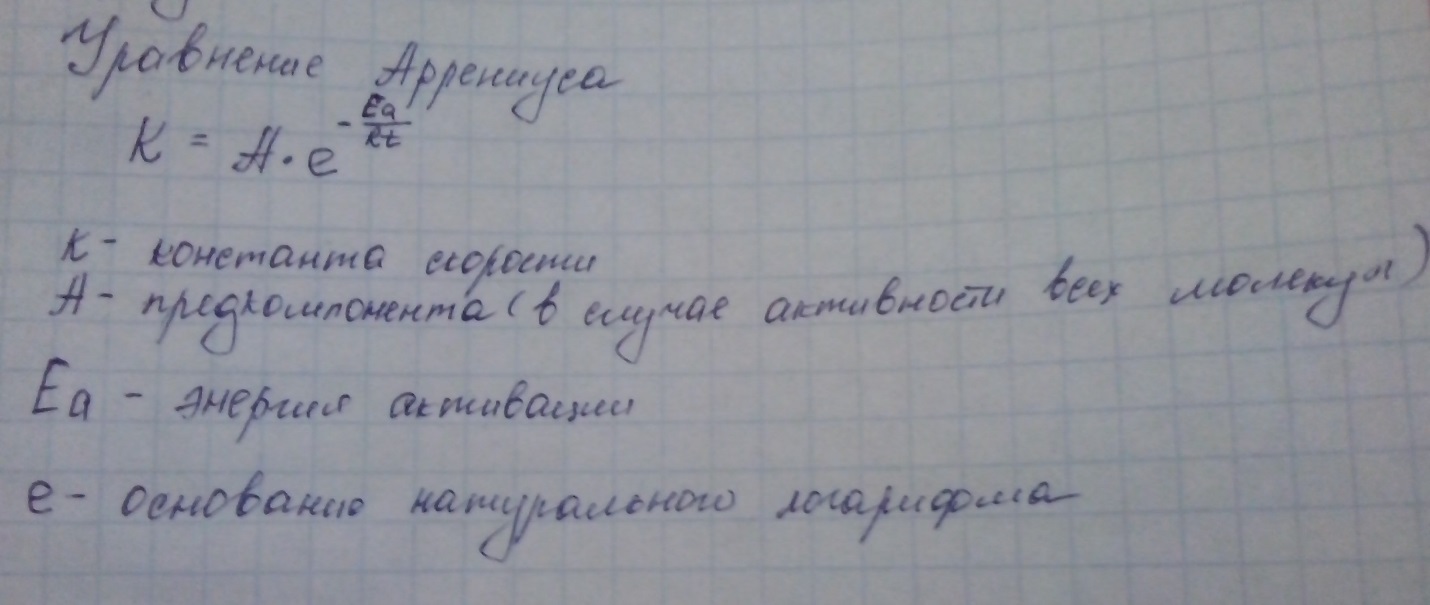 Уравнение Аррениуса
K = A · e^(-Ea/Rt)
K - константа скорости
A - предкомпонента (в случае активности всех молекул)
Ea - энергия активации
e - основание натурального логарифма